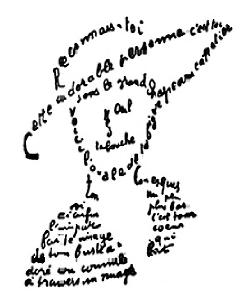 Reconnais-toi
Cette adorable personne c'est toi
sous le grand chapeau canotier
œil
nez
la bouche
Voici l'ovale de ta figure
ton cou exquis
voi
ci enfin
l'impar
faite image
de ton buste a
doré vu comme
à travers un nuage
un peu
plus bas
c'est ton
coeur
qui
bat